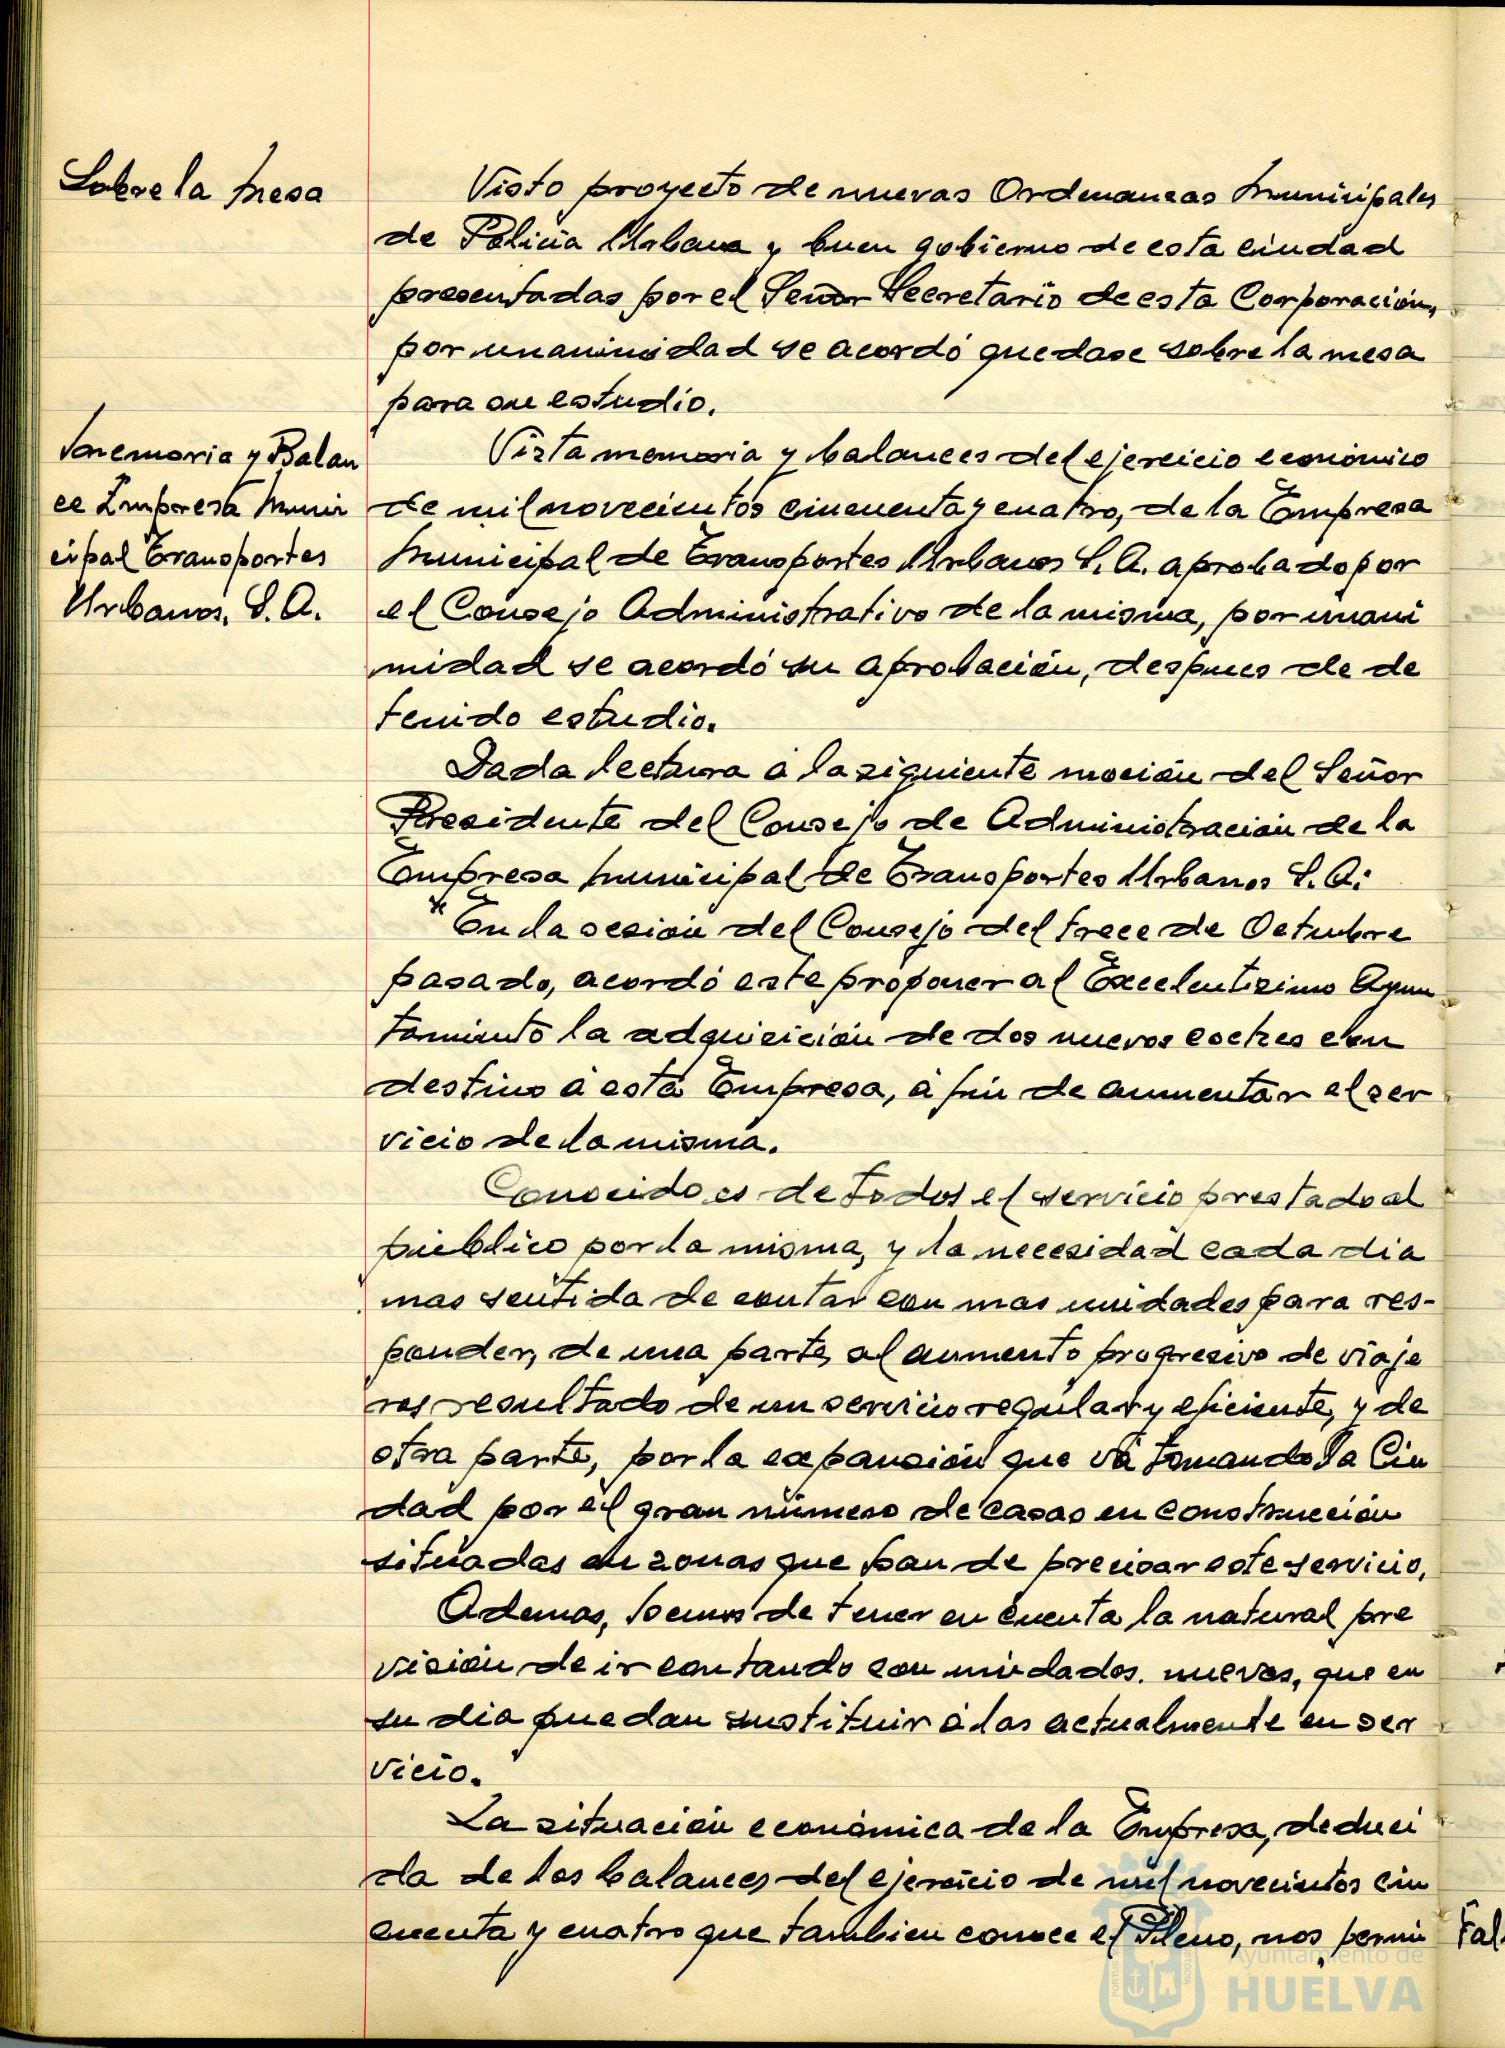 Sobre la Mesa
Visto proyecto de nuevas Ordenanzas Municipales
de Policia Urbana y buen gobierno de esta ciudad
presentadas por el Señor Secretario de esta Corporación,
por unanimidad se acordó quedase sobre la mesa
para su estudio.
Memoria y Balan
ce Empresa Muni
cipal Transportes
Urbanos, S. A.
Vista memoria y balances del ejercicio económico
de mil novecientos cincuenta y cuatro, de la Empresa
Municipal de Transportes Urbanos S. A. aprobado por
el Consejo Administrativo de la misma, por unani
midad se acordó su aprobación, despues de de
tenido estudio.
Dada lectura á la siguiente moción del Señor
Presidente del Consejo de Administración de la
Empresa Municipal de Transportes Urbanos S. A:
"En la sesión del Consejo del trece de Octubre
pasado, acordó este proponer al Excelentisimo Ayun
tamiento la adquisición de dos nuevos coches con
destino á esta Empresa, á fin de aumentar el ser
vicio de la misma.
Conocido es de todos el servicio prestado al
público por la misma, y la necesidad cada dia
mas sentida de contar con mas unidades para res-
ponder, de una parte, al aumento progresivo de viaje
ros resultado de un servicio regular y eficiente, y de
otra parte, por la expansión que vá tomando la Ciu
dad por el gran número de casas en construcción
situadas en zonas que han de precisar este servicio.
Ademas, hemos de tener en cuenta la natural pre
visión de ir contando con unidades. nuevas, que en
su dia puedan sustituir á las actualmente en ser
vicio.
La situación económica de la Empresa, deduci
da de los balances del ejercicio de mil novecientos cin
cuenta y cuatro que tambien conoce el Pleno, nos permi
Fal
Ayuntamiento de
HUELVA